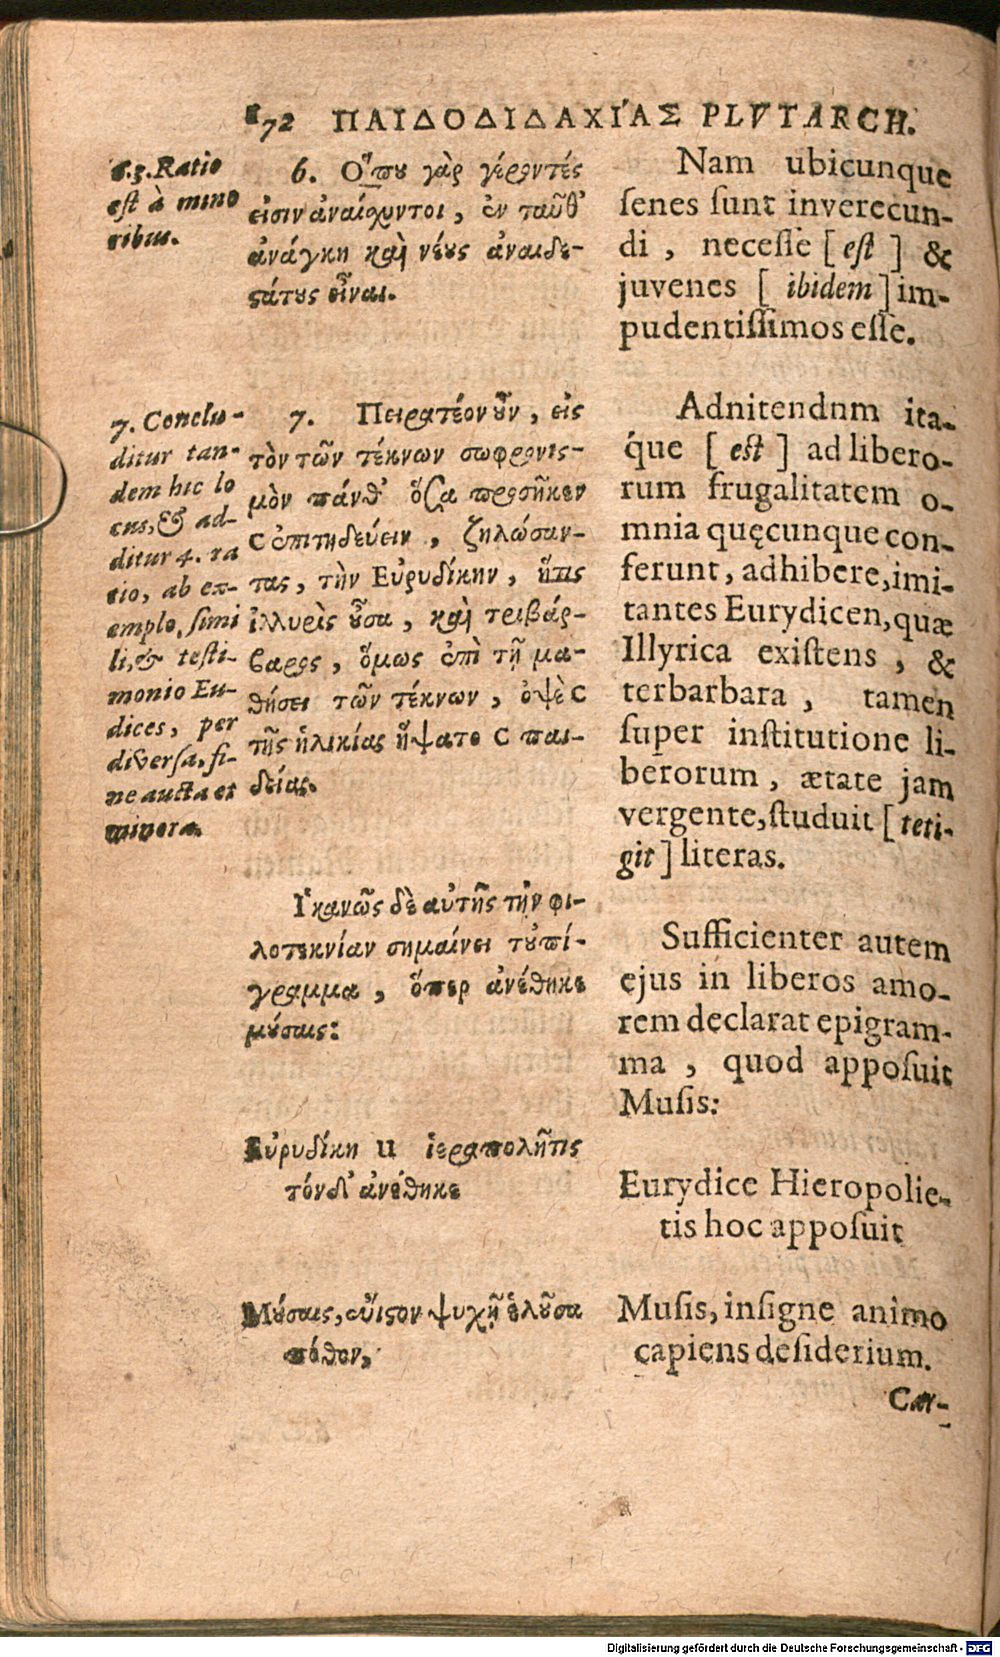 172 ΠΑΙΔΟΔΙΔΑΧΙ´ΑΣ PLVTARCH.
6.3. Ratio
est à mino
ribus.
6. Ὅπου γὰρ γέροντές
εἰσιν ἀναίσχυντοι, ἐν ταῦθ'
ἀνάγκη καὶ νέους ἀναιδε-
στάτους εἶναι.
Nam ubicunque
senes sunt inverecun-
di, necesse [est] &
juvenes [ibidem] im-
pudentissimos esse.
7. Conclu-
ditur tan-
dem hic lo
cus, & ad-
ditur 4. ra
tio, ab ex-
emplo, simi
li, & testi-
monio Eu-
dices, per
diversa, fi-
ne aucta et
minora.
7. Πειρατέον οὖν, εἰς
τὸν τῶν τέκνων σωφρονισ-
μὸν πάνθ' ὅσα προσῆκεν
ἐπιτηδεύειν, ζηλώσαν-
τας, τὴν Εὐρυδίκην, ἥτις
ἰλλυρὶς οὖσα, καὶ τριβάρ-
βαρος, ὅμως ἐπὶ τῇ μα-
θήσει τῶν τέκνων, ὀψὲ
τῆς ἡλικίας ἥψατο παι-
δείας.
Adnitendum ita-
que [est] ad libero-
rum frugalitatem o-
mnia quęcunque con-
ferunt, adhibere, imi-
tantes Eurydicen, quæ
Illyrica existens, &
terbarbara, tamen
super institutione li-
berorum, ætate jam
vergente, studuit [teti-
git] literas.
Ἱκανῶς δὲ αὐτῆς τὴν φι-
λοτεκνίαν σημαίνει τοὐπί-
γραμμα, ὅπερ ἀνέθηκε
μούσαις:
Sufficienter autem
ejus in liberos amo-
rem declarat epigram-
ma, quod apposuit
Musis:
Εὐρυδίκη ἱεραπολῆτις
τόνδ' ἀνέθηκε
Eurydice Hieropolie-
tis hoc apposuit
Μούσαις, εὔιστον ψυχῇ ἑλοῦσα
πόθον,
Musis, insigne animo
capiens desiderium.
Car-
Digitalisierung gefördert durch die Deutsche Forschungsgemeinschaft - DFG